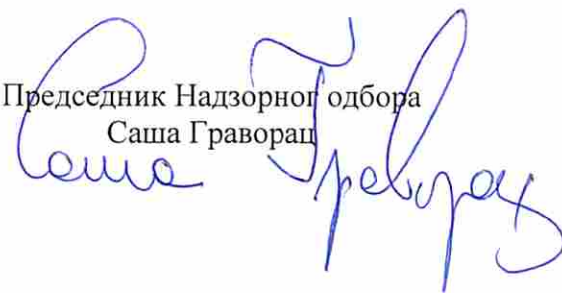 Председник Надзорног одбора
Саша Граворац
Саша Граворац